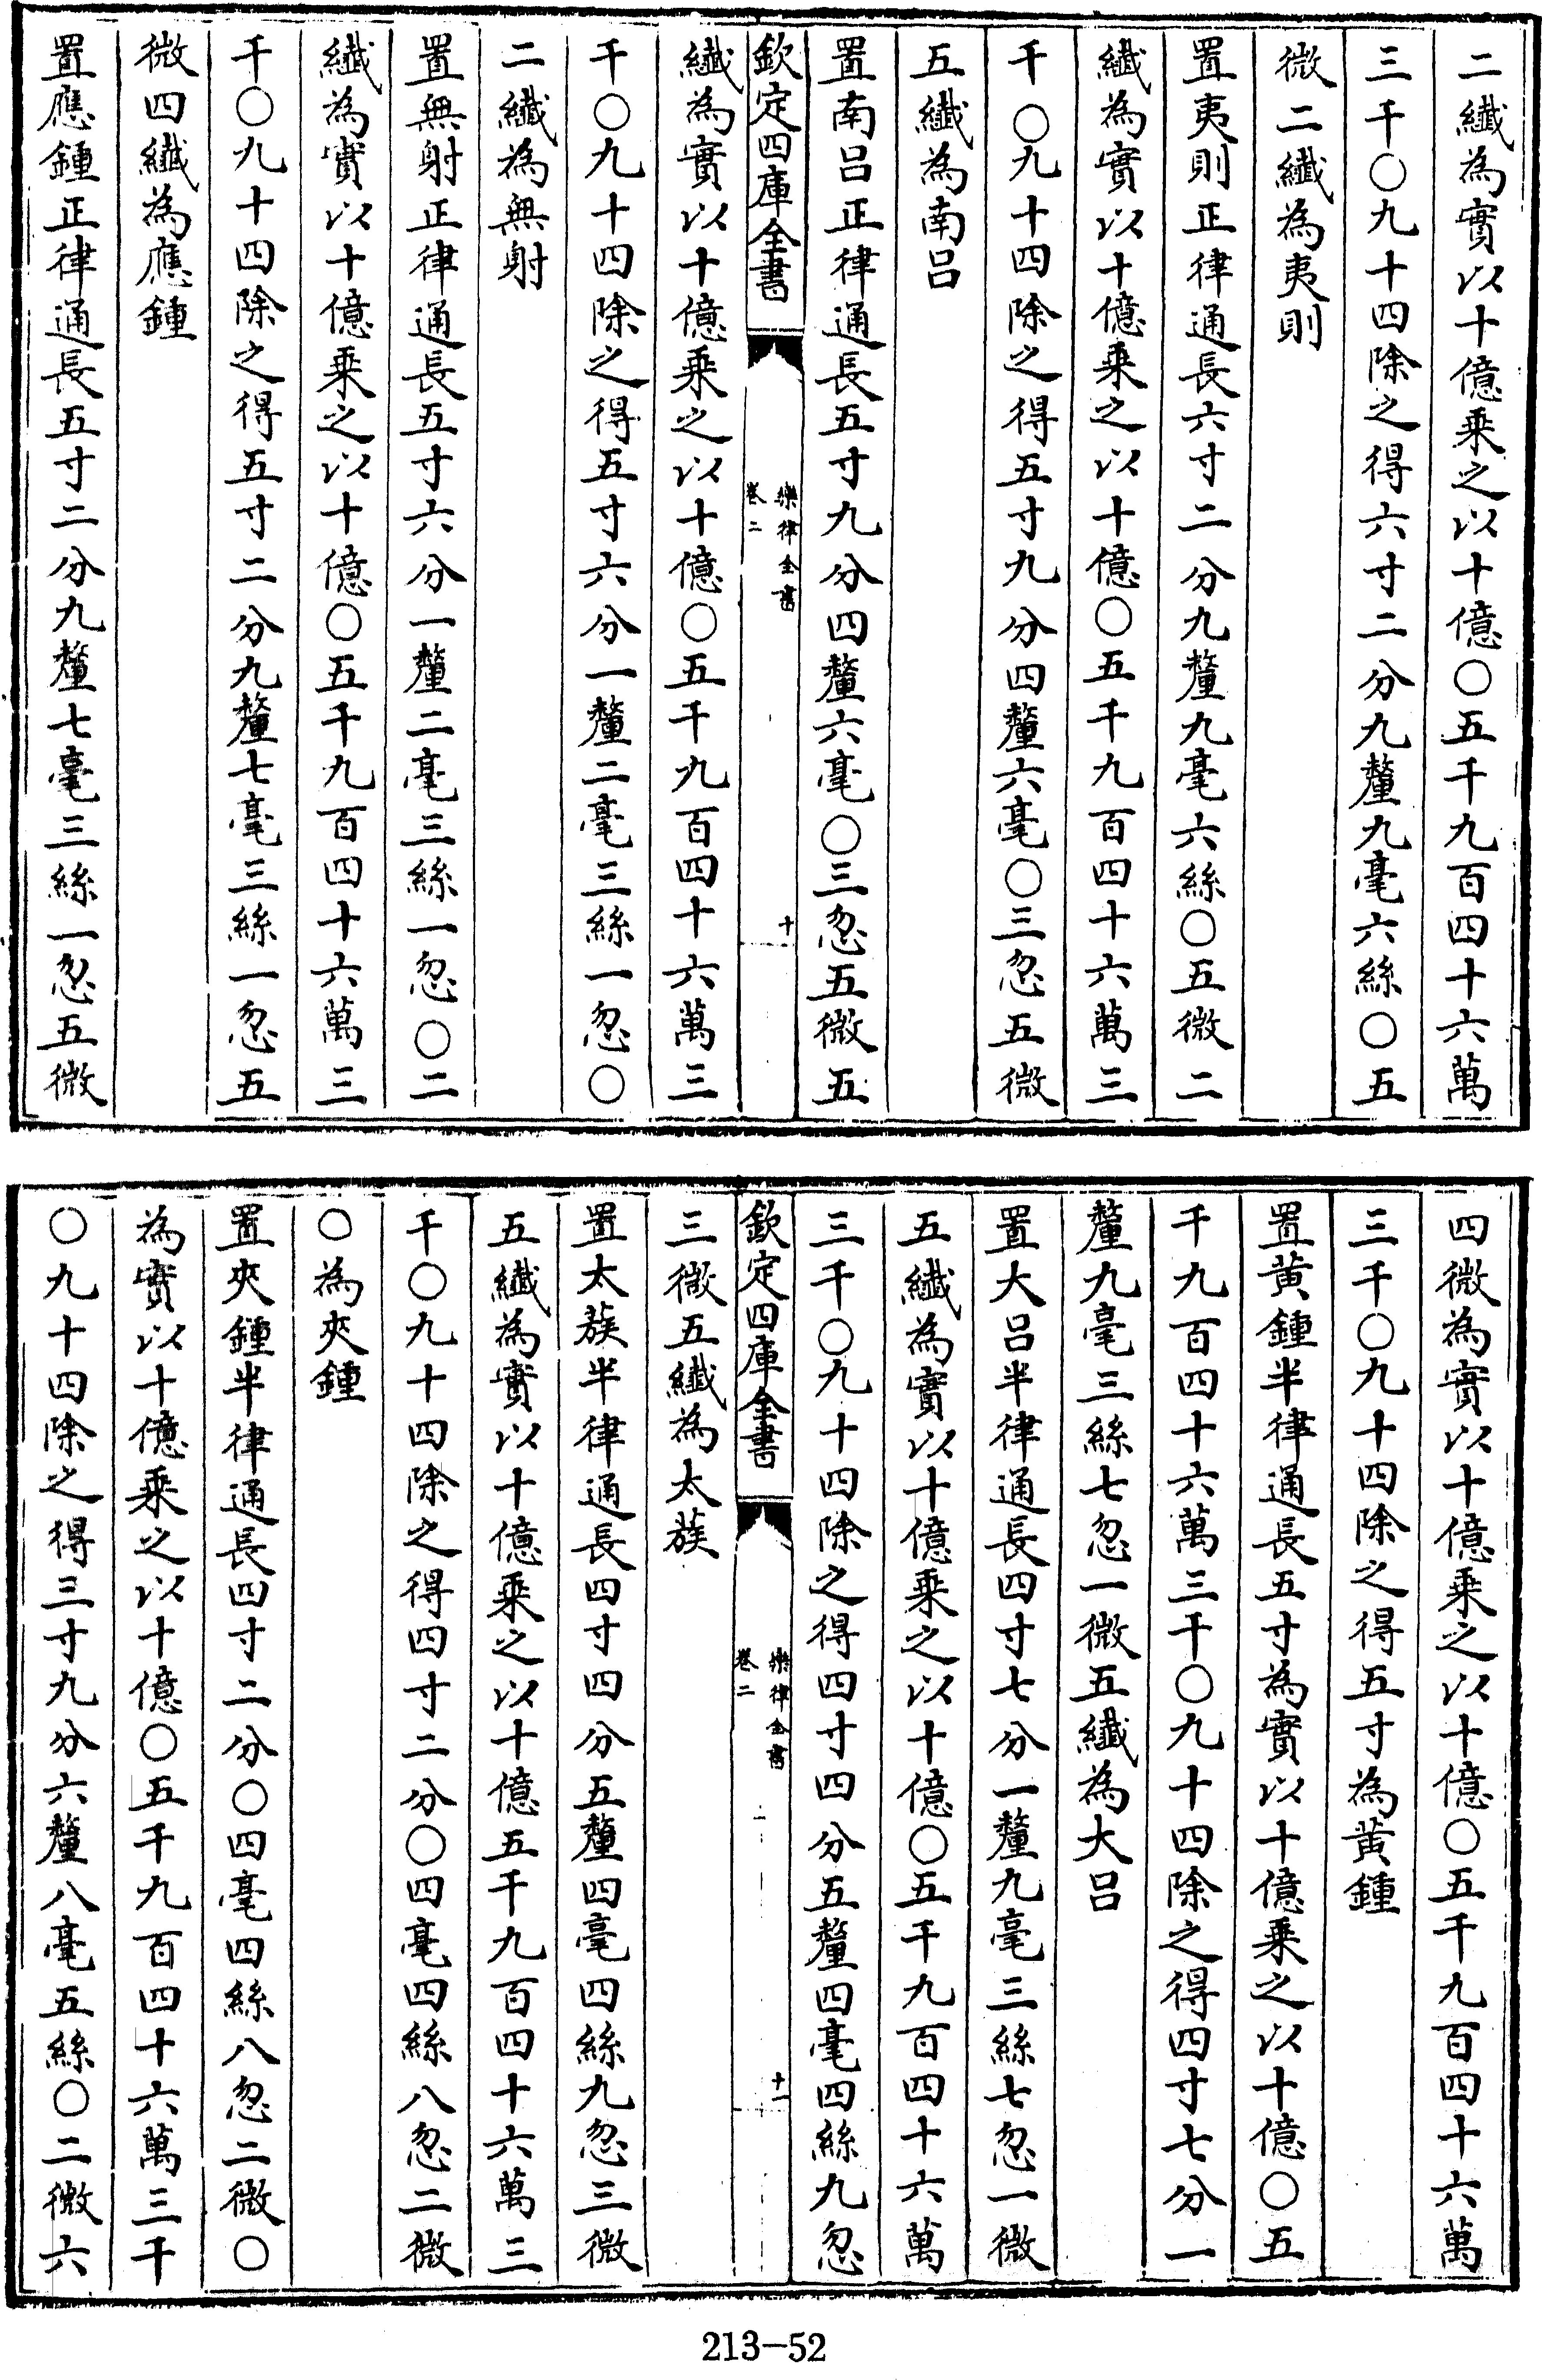 二纖為實以十億乗之以十億〇五千九百四十六萬
三千〇九十四除之得六寸二分九釐九毫六絲〇五
微二纖為夷則
置夷則正律通長六寸二分九釐九毫六絲〇五微二
纖為實以十億乗之以十億〇五千九百四十六萬三
千〇九十四除之得五寸九分四釐六毫〇三忽五微
五纖為南呂
置南呂正律通長五寸九分四釐六毫〇三忽五微五
欽定四庫全書
樂律全書
卷二
十
纖為實以十億乗之以十億〇五千九百四十六萬三
千〇九十四除之得五寸六分一釐二毫三絲一忽〇
二纖為無射
置無射正律通長五寸六分一釐二毫三絲一忽〇二
纖為實以十億乗之以十億〇五千九百四十六萬三
千〇九十四除之得五寸二分九釐七毫三絲一忽五
微四纖為應鍾
置應鍾正律通長五寸二分九釐七毫三絲一忽五微
四微為實以十億乗之以十億〇五千九百四十六萬
三千〇九十四除之得五寸為黃鍾
置黃鍾半律通長五寸為實以十億乗之以十億〇五
千九百四十六萬三千〇九十四除之得四寸七分一
釐九毫三絲七忽一微五纖為大呂
置大呂半律通長四寸七分一釐九毫三絲七忽一微
五纖為實以十億乗之以十億〇五千九百四十六萬
三千〇九十四除之得四寸四分五釐四毫四絲九忽
欽定四庫全書
樂律全書
卷二
十一
三微五纖為太蔟
置太蔟半律通長四寸四分五釐四毫四絲九忽三微
五纖為實以十億乗之以十億五千九百四十六萬三
千〇九十四除之得四寸二分〇四毫四絲八忽二微
〇為夾鍾
置夾鍾半律通長四寸二分〇四毫四絲八忽二微〇
為實以十億乗之以十億〇五千九百四十六萬三千
〇九十四除之得三寸九分六釐八毫五絲〇二微六
213-52